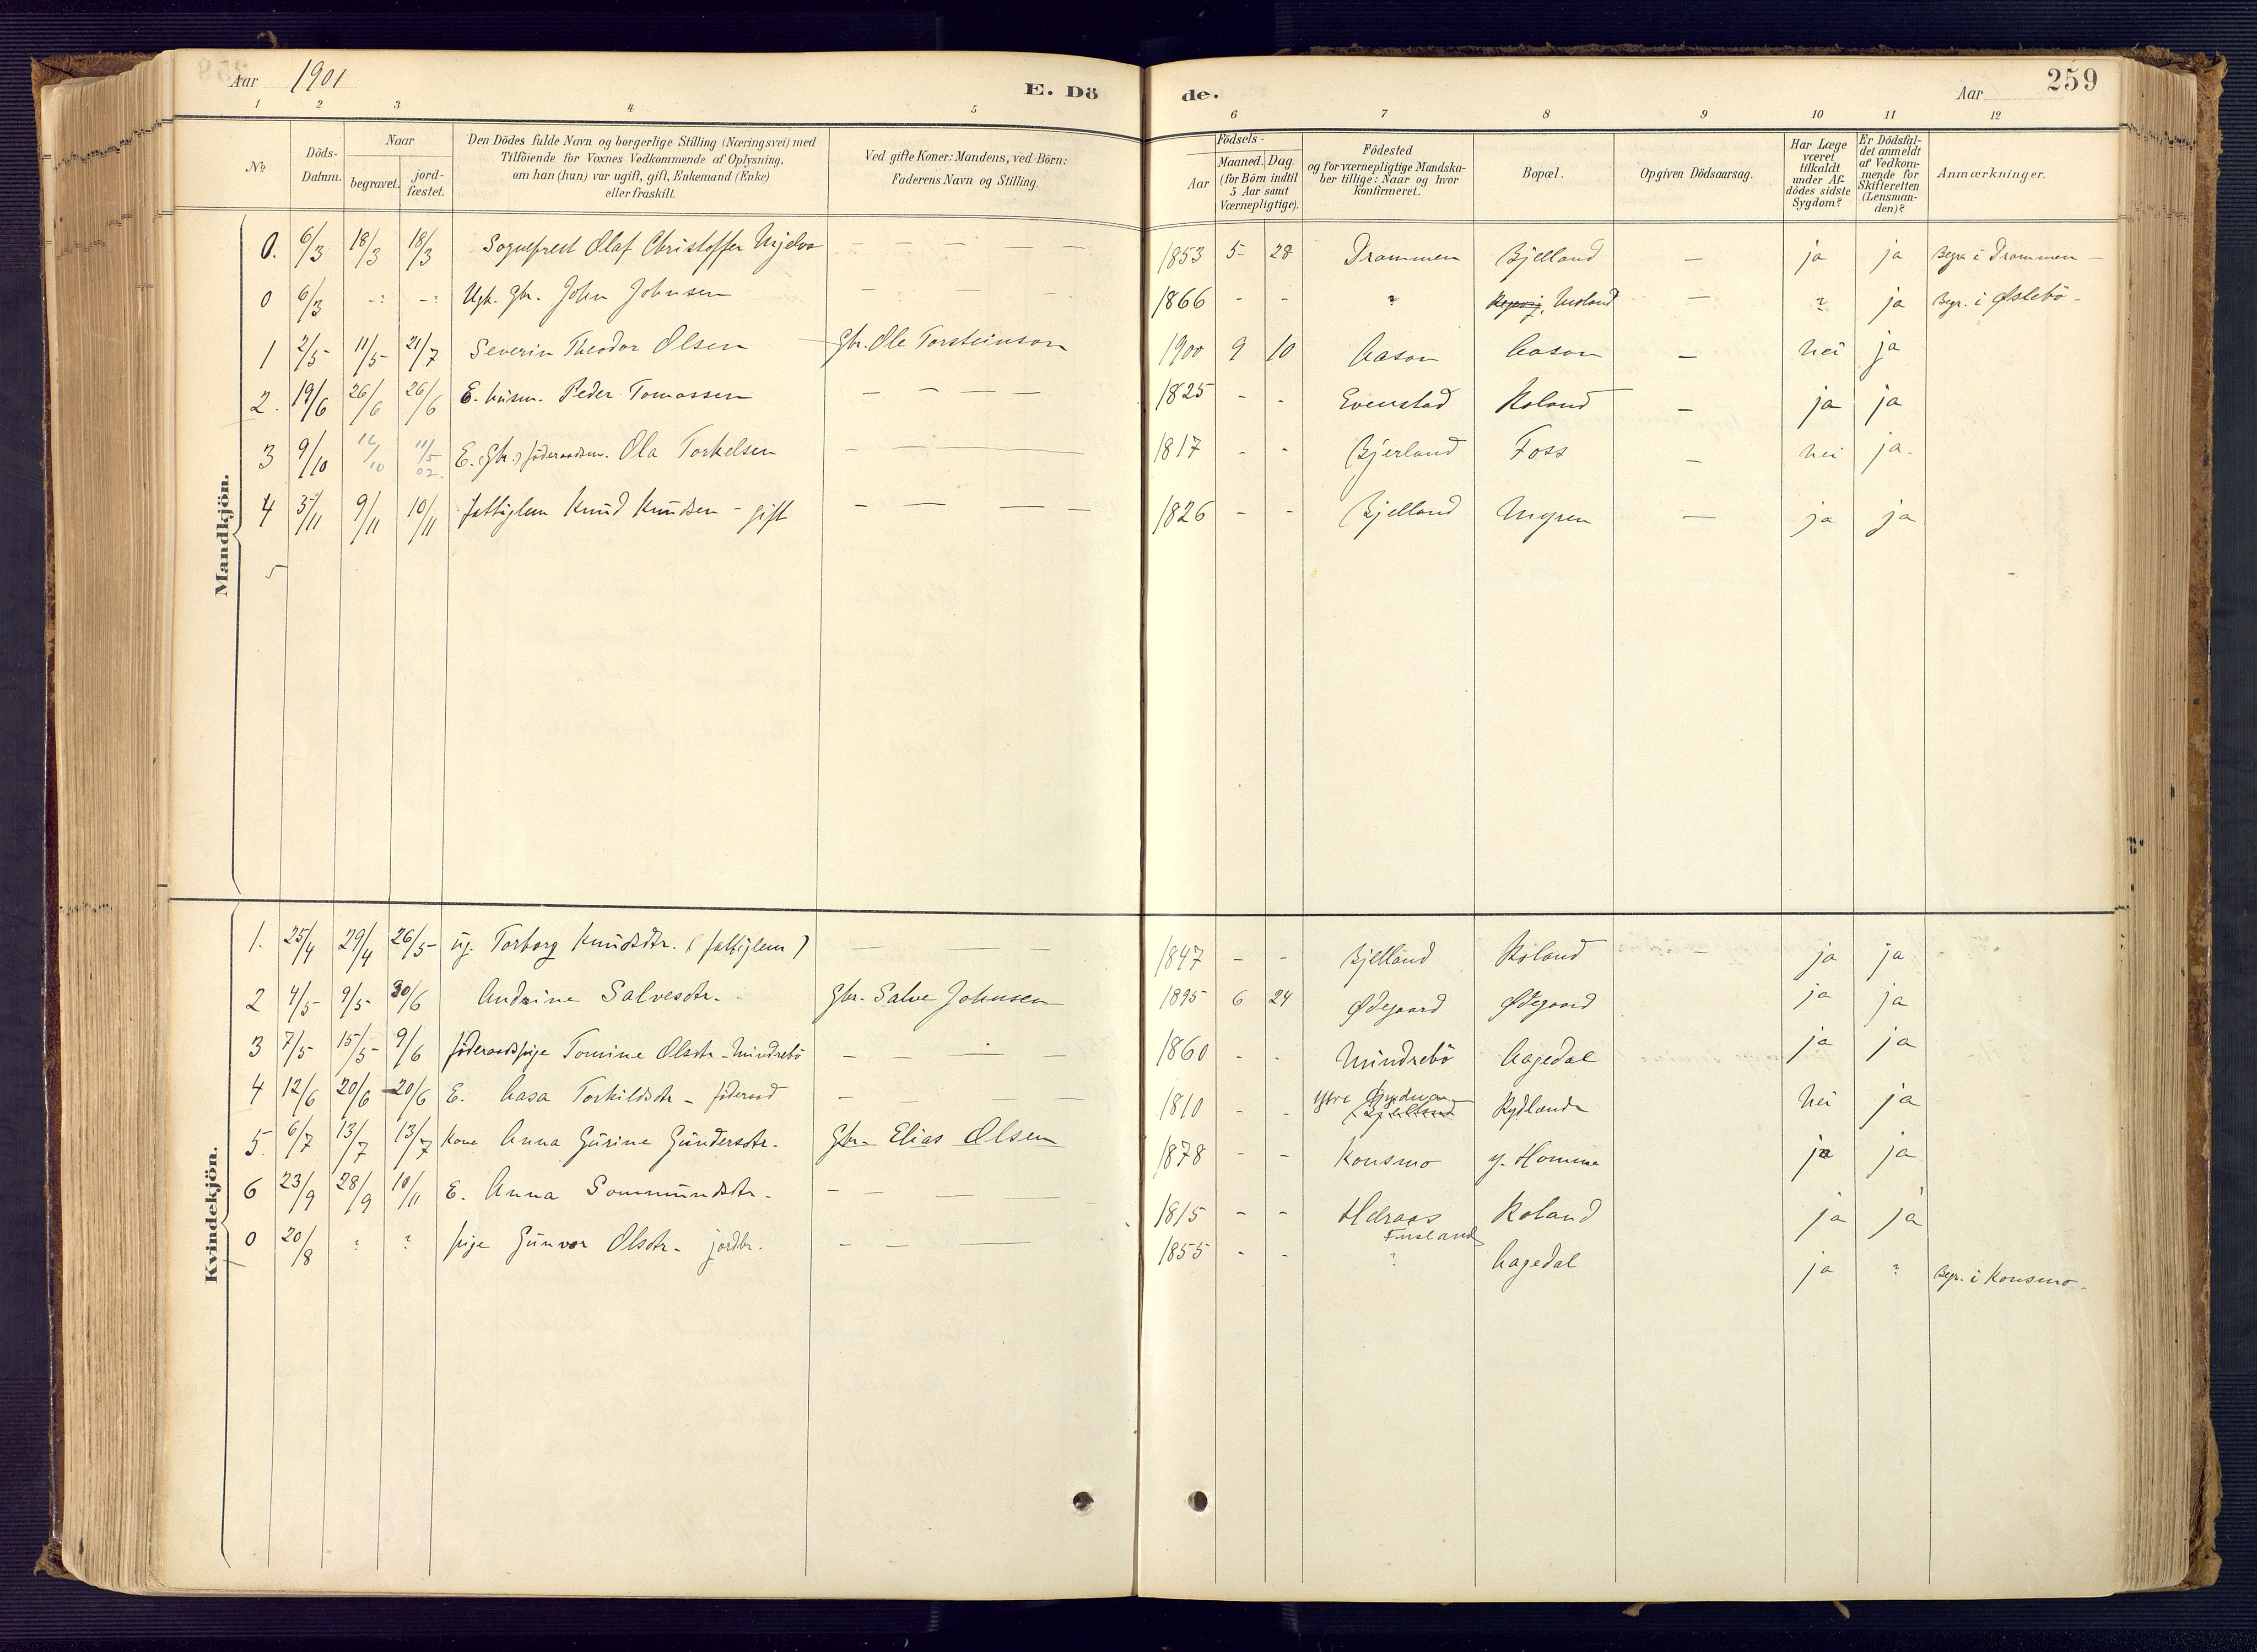 Aar 1901 E. Dö de. Aar 259
1 2 3 4 5 6 7 8 9 10 11 12
No
Döds-Datum.
Naar
begravet.
jord-fæstet.
Den Dödes fulde Navn og borgerlige Stilling (Næringsvei) med
Tilföiende for Voxnes Vedkommende af Oplysning,
om han (hun) var ugift, gift, Enkemand (Enke)
eller fraskilt.
Ved gifte Koner: Mandens, ved Börn:
Faderens Navn og Stilling.
Födsels-
Aar
Maaned. Dag.
(for Börn indtil
5 Aar samt
Værnepligtige).
Födested
og for værnepligtige Mandska-
ber tillige: Naar og hvor
Konfirmeret.
Bopæl.
Opgiven Dödsaarsag.
Har Læge
været
tilkaldt
under Af-
dödes sidste
Sygdom?
Er Dödsfal-
det anmeldt
af Vedkom-
mende for
Skifteretten
(Lensman-
den)?
Anmærkninger.
Mandkjön.
0. 6/3 18/3 18/3 Sogneprest Olaf Christoffer — — — — — 1853 5 28 Drammen Bjelland — ja ja Begr. i Drammen —
0 6/3 -:- -:- Ugh. Gbr. John Johnsen — — — — 1866 - - ? — ? ja Begr. i Øslebö -
1 2/5 11/5 21/7 Severin Theodor Olsen Gbr. Ole Torsteinson 1900 9 10 Aasen Aasen — nei ja
2. 19/6 26/6 26/6 E. husm. Peder Tomassen — — — — 1825 - - Evenstad Roland — ja ja
3 9/10 12/10 11/5 02. E. (Gbr.) föderaadsm. Ola Torkelsen — — — — 1817 - - Bjerland Foss — nei ja.
4 5/11 9/11 10/11 fattiglem Knud Knudsen - gift — — — — 1826 - - Bjelland Myren — ja ja
5
Kvindekjön.
1. 25/4 29/4 26/5 ug. Torborg Knudsdtr. (fattiglem) — — — 1847 - - Bjelland Roland — ja ja
2 4/5 9/5 30/6 Andrine Salvesdtr. Gbr. Salve Johnsen 1895 6 24 Ødegaard Ødegaard ja ja
3 7/5 15/5 9/6 föderaadspige Tomine Olsdtr - Mindrebö — — — — 1860 - - Mindrebö Aagedal ja ja
4 12/6 20/6 20/6 E. Aasa Torkildsdtr - föderaad — — — — 1810 - - Ytre Øydnen Bjelland Rydland nei ja
5. 6/7 13/7 13/7 Kone Anna Gurine Gundersdtr. Gbr. Elias Olsen 1878 - - Konsmo y. Homme ja ja
6 23/9 28/9 10/11 E. Anna Sommundsdtr. — — — — 1815 - - Helraas Roland ja ja
Finsland
0 20/8 ? ? pige Gunvor Olsdtr. jordbr. — — — — 1855 - - ? Aagedal ja ? Begr. i Konsmo.